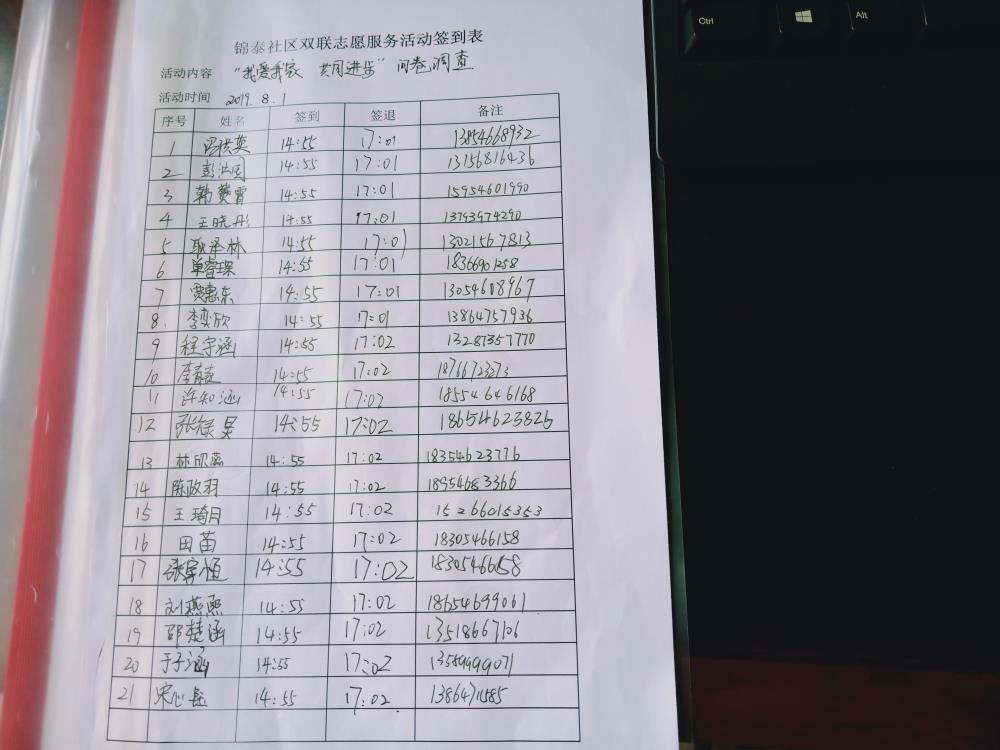 Ctrl
Alt
锦泰社区双联志愿服务活动签到表
活动内容 "我爱我家 共同进步" 问卷调查
活动时间 2019.8.1
序号 姓名 签到 签退 备注
1 14:55 17:01 13854668932
2 彭洪园 14:55 17:01 13156816436
3 韩赞霄 14:55 17:01 15954601990
4 王晓彤 14:55 17:01 13793974290
5 耿泽林 14:55 17:01 13021567813
6 单睿琛 14:55 17:01 18366901258
7 贾惠东 14:55 17:01 13054608967
8. 李奕欣 14:55 17:01 13864757936
9 程宇涵 14:55 17:02 13287357770
10 14:55 17:02 18766723273
11 许知涵 14:55 17:02 18554646168
12 14:55 17:02 18654623825
13 林欣蕊 14:55 17:02 18354623776
14 陈政羽 14:55 17:02 18954683366
15 王琦月 14:55 17:02 15266015353
16 田苗 14:55 17:02 18305466158
17 张宇恒 14:55 17:02 18305466158
18 刘燕熙 14:55 17:02 18654699061
19 邵楚涵 14:55 17:02 13518667106
20 于子涵 14:55 17:02 13589999071
21 宋心岳 14:55 17:02 13864711585